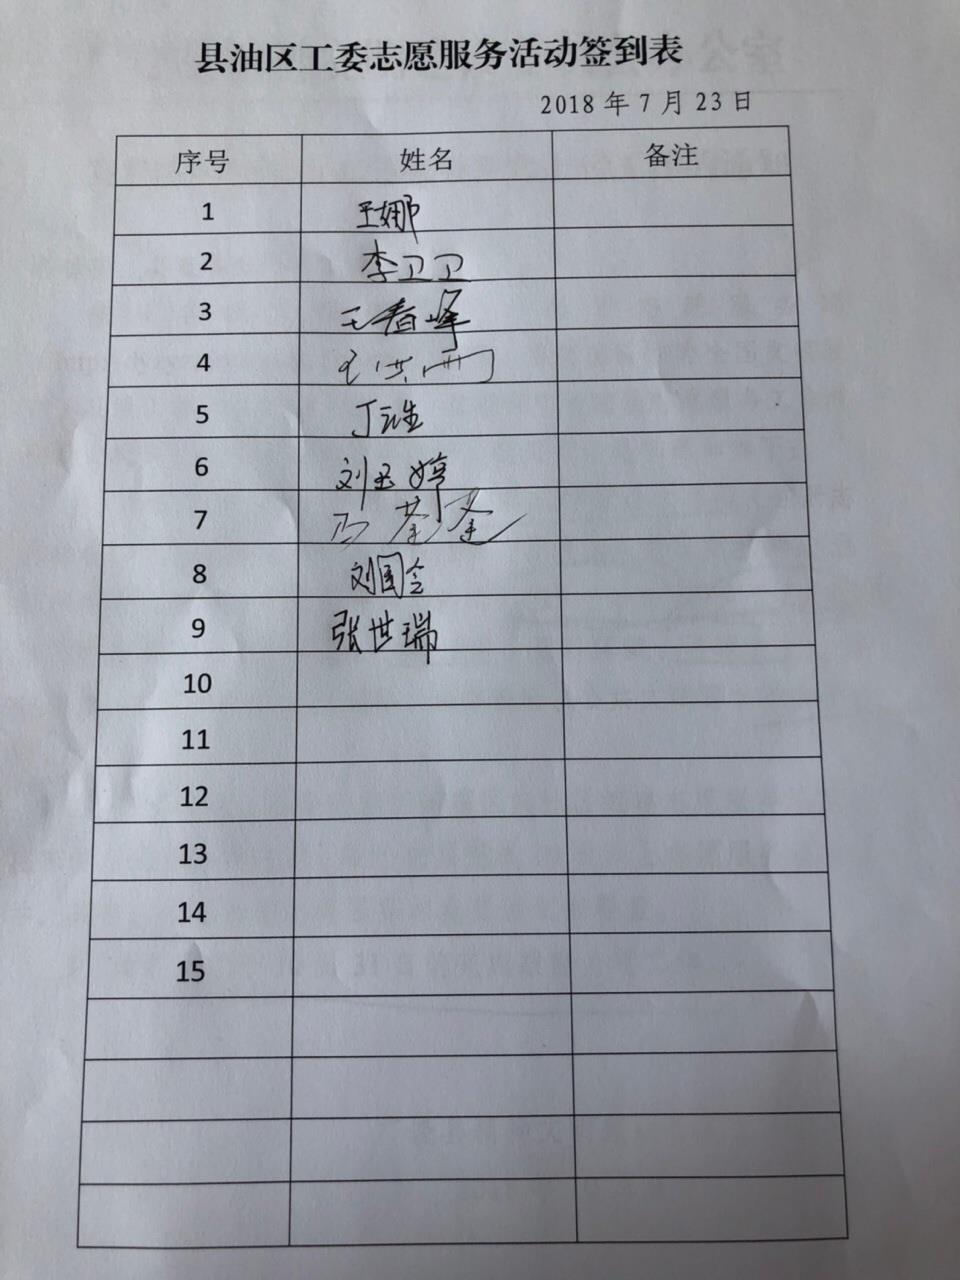 县油区工委志愿服务活动签到表
2018年7月23日
序号 姓名 备注
1 王娜
2 李卫卫
3 王春峰
4
5 丁
6 刘玉婷
7
8 刘国会
9 张世瑞
10
11
12
13
14
15